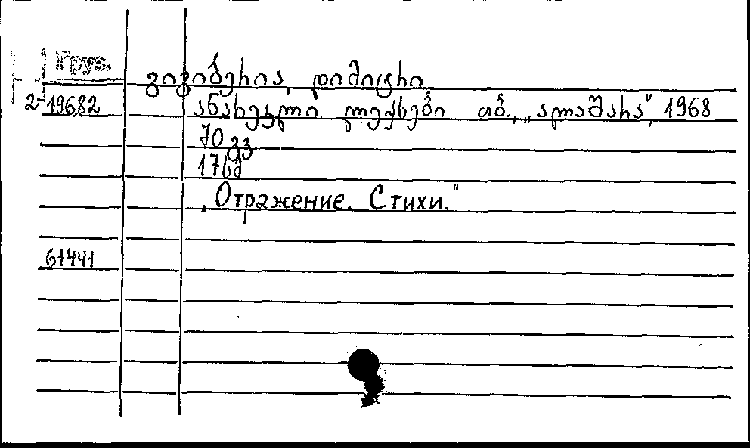 Груз.
გიგიბერია, დიმიტრი
2-19682 ანარეკლი ლექსები თბ., „ალაშარა", 1968
70 გვ
17სმ
„Отражение. Стихи."
61441